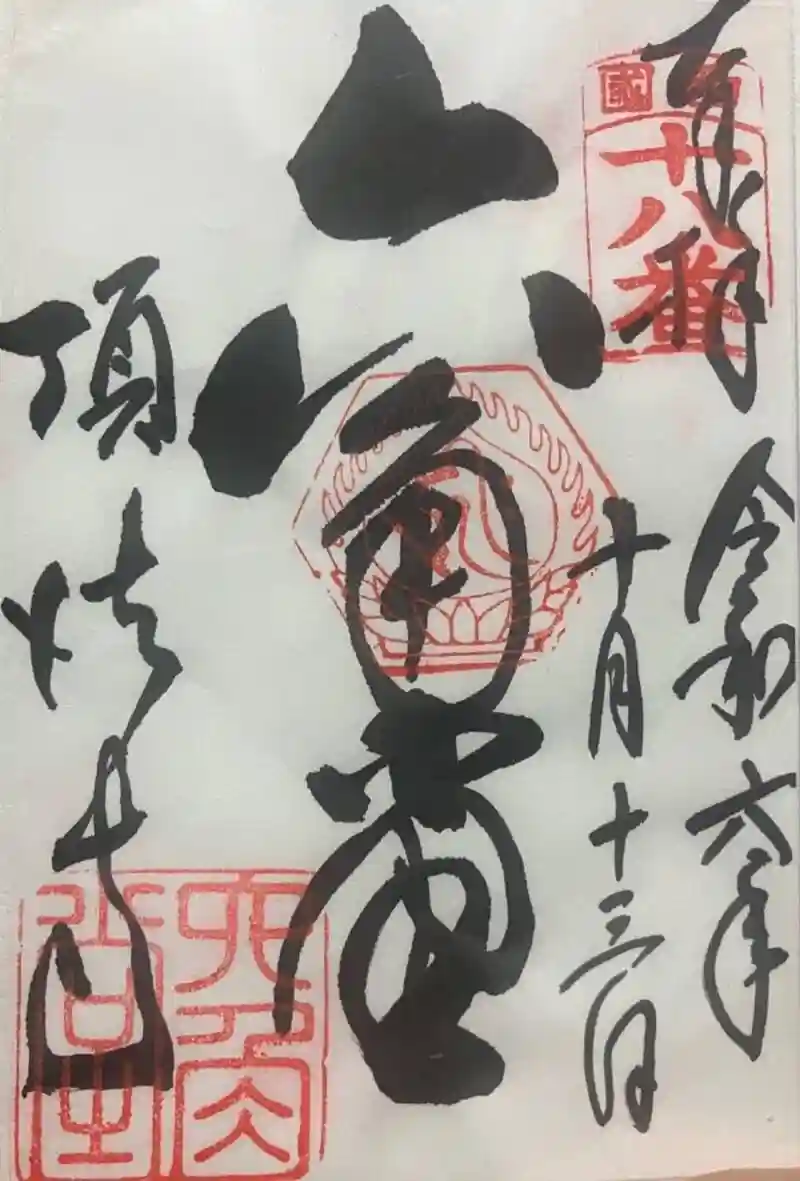 奉拝
西國
十八番
令和六年
十月十三日
六角堂
頂法寺
六角堂